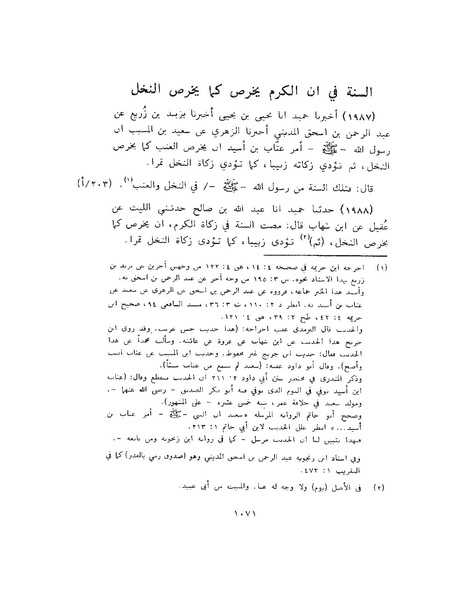 السنة في ان الكرم يخرص كما يخرص النخل
(١٩٨٧) أخبرنا حميد انا يحيى بن يحيى أخبرنا يزيد بن زُريع عن
عبد الرحمن بن اسحق المديني أخبرنا الزهري عن سعيد بن المسيب ان
رسول الله - ﷺ - أمر عتّاب بن أسيد ان يخرص العنب كما يخرص
النخل، ثم تؤدى زكاته زبيبا، كما تؤدى زكاة النخل تمرا.
قال: فتلك السنة من رسول الله - ﷺ -/ في النخل والعنب(١). (٢٠٣/أ)
(١٩٨٨) حدثنا حميد انا عبد الله بن صالح حدثني الليث عن
عُقيل عن ابن شهاب قال: مضت السنة في زكاة الكرم، ان يخرص كما
يخرص النخل، (ثم)(٢) تؤدى زبيبا، كما تؤدى زكاة النخل تمرا.
(١) اخرجه ابن خزيمة في صحيحه ٤: ٤١، هق ٤: ١٢٢ من وجهين آخرين عن يزيد بن
زريع بهذا الاسناد نحوه. س ٣: ١٩٥ من وجه آخر عن عبد الرحمن بن اسحق به.
عتاب بن أسيد به. انظر د ٢: ١١٠، ت ٣: ٣٦، مسند الشافعي ٩٤، صحيح ابن
خزيمة ٤: ٤٢، طح ٢: ٣٩، هق ٤: ١٢١.
والحديث قال الترمذي عقب اخراجه: (هذا حديث حسن غريب. وقد روى ابن
جريج هذا الحديث عن ابن شهاب عن عروة عن عائشة. وسألت محمدا عن هذا
الحديث فقال: حديث ابن جريج غير محفوظ. وحديث ابن المسيب عن عتاب اثبت
وأصح). وقال أبو داود عقبه: (سعيد لم يسمع من عتاب شيئا).
وذكر المنذري في مختصر سنن أبي داود ٢: ٢١١ ان الحديث منقطع وقال: (عتاب
ابن أسيد توفي في اليوم الذي توفي فيه أبو بكر الصديق - رضي الله عنهما -.
ومولد سعيد في خلافة عمر، سنة خمس عشرة - على المشهور).
وصحح أبو حاتم الرواية المرسلة «سعيد ان النبي - ﷺ - أمر عتاب بن
أسيد... » انظر علل الحديث لابن أبي حاتم ١: ٢١٣.
فبهذا يتبين لنا ان الحديث مرسل - كما في رواية ابن زنجويه ومن تابعه -.
وفي اسناد ابن زنجويه عبد الرحمن بن اسحق المديني وهو (صدوق رمي بالقدر) كما في
التقريب ١: ٤٧٢.
(٢) في الأصل (يوم) ولا وجه له هنا. والمثبت من أبي عبيد.
١٠٧١